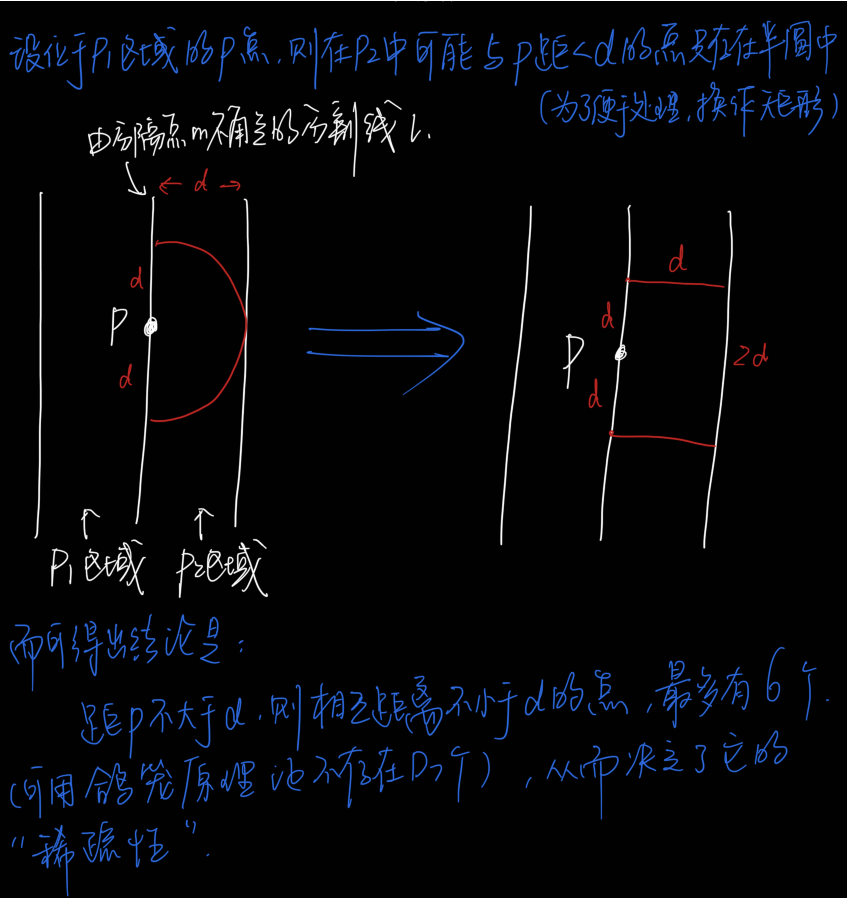 设位于P1区域的p点,则在P2中可能与p距<d的点只存在半圆中
(为了便于处理,换作矩形)
由分隔点m确定的分割线l.
← d →
d
d
P
d
d
d
P
2d
P1区域 P2区域
而可得出结论是:
距p不大于d,则相互距离不小于d的点,最多有6个.
(可用鸽笼原理 ),从而决定了它的
"稀疏性".